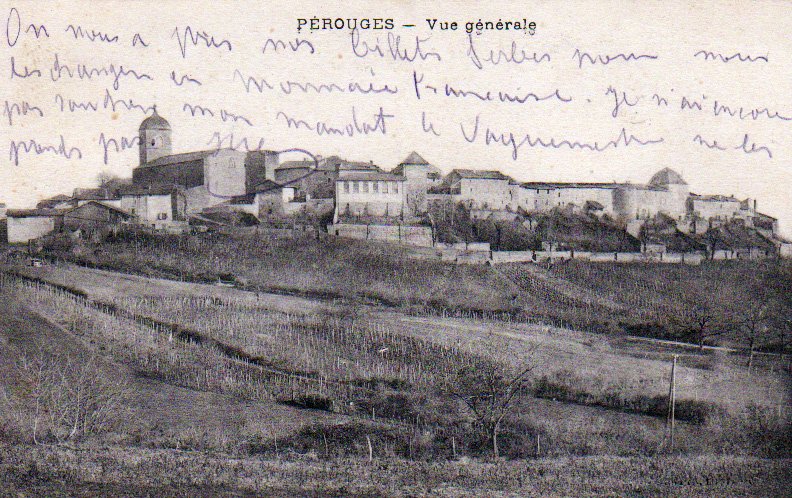 PÉROUGES — Vue générale
On nous a pris nos billets Serbes pour nous
les changer en monnaie Francaise. Je n'ai encore
pas mon mandat le Vaguemestre ne les
prends pas